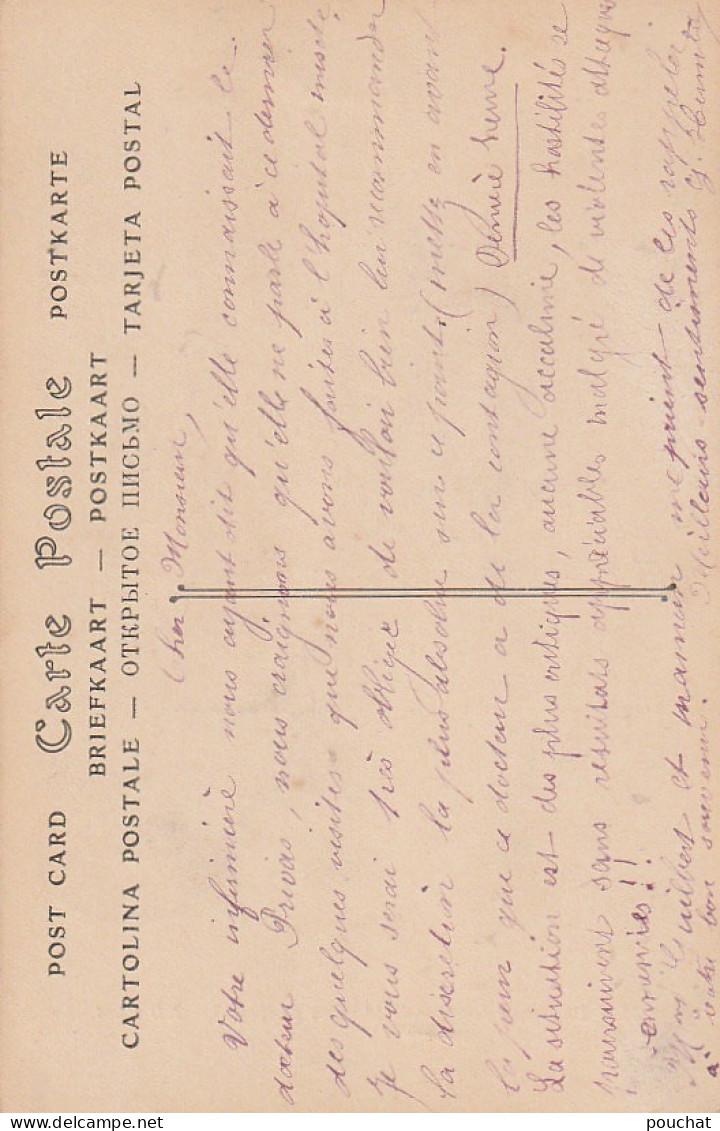 POST CARD Carte Postale POSTKARTE
BRIEFKAART — POSTKAART
CARTOLINA POSTALE — ОТКРЫТОЕ ПИСЬМО — TARJETA POSTAL
Cher Monsieur,
Votre infirmière nous ayant dit qu'elle connaissait le
docteur Privas, nous craignons qu'elle ne parle à ce dernier
des quelques visites que nous avons faites à l'hopital mixte
Je vous serai très obligé de vouloir bien lui recommander
la discretion la plus absolue sur ce point. (mettez en avant
la peur que ce docteur a de la contagion) Dernière heure.
La situation est des plus critiques, aucune accalmie, les hostilités se
poursuivent sans resultats appréciables malgré de violentes attaques
ennemies!!
et maman me prient de les rappeler
à votre bon souvenir. Meilleurs sentiments
pouchat